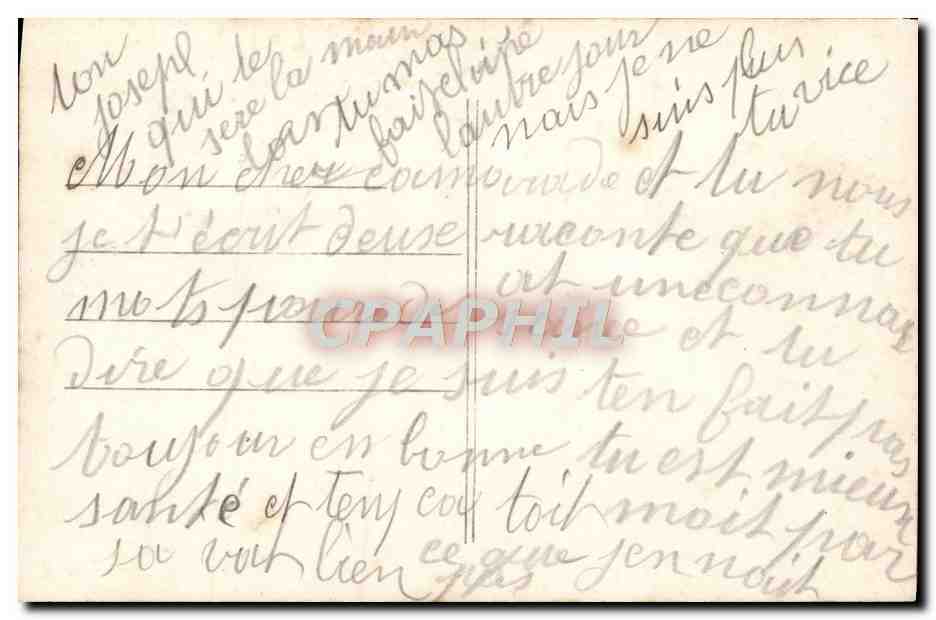 Mon cher camarade
je t'écrit deuse
mots pour de
dire que je suis
toujour en bonne
santé et tens ca toit
sa vat bien
et tu nous
raconte que tu
at une connai
et tu
ten fait pas
tu est mieux
moit par
ce que jen nait
pas
ton
joseph
qui te
sere la main
tu mas
fait rire
lautre jour
mais je ne
suis plus
tu vice
CPAPHIL